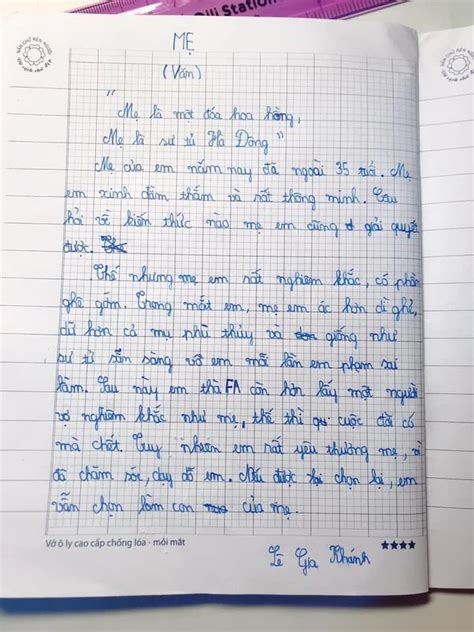 Olli Station
NÉT CHỮ NẾT NGƯỜI
MẸ
(Văn)
"Mẹ là một đóa hoa hồng,
Mẹ là sư tử Hà Đông"
Mẹ của em năm nay đã ngoài 35 tuổi. Mẹ
em xinh đằm thắm và rất thông minh. Câu
hỏi về kiến thức nào mẹ em cũng giải quyết
được.
Thế nhưng mẹ em rất nghiêm khắc, có phần
ghê gớm. Trong mắt em, mẹ em ác hơn dì ghẻ,
dữ hơn cả mụ phù thủy và giống như
sư tử sẵn sàng vồ em mỗi lần em phạm sai
lầm. Sau này em thà FA còn hơn lấy một người
vợ nghiêm khắc như mẹ, thế thì cuộc đời có
mà chết. Tuy nhiên em rất yêu thương mẹ, vì
đã chăm sóc, dạy dỗ em. Nếu được chọn lại, em
vẫn chọn làm con của mẹ.
Vở ô ly cao cấp chống lóa - mỏi mắt
Lê Gia Khánh